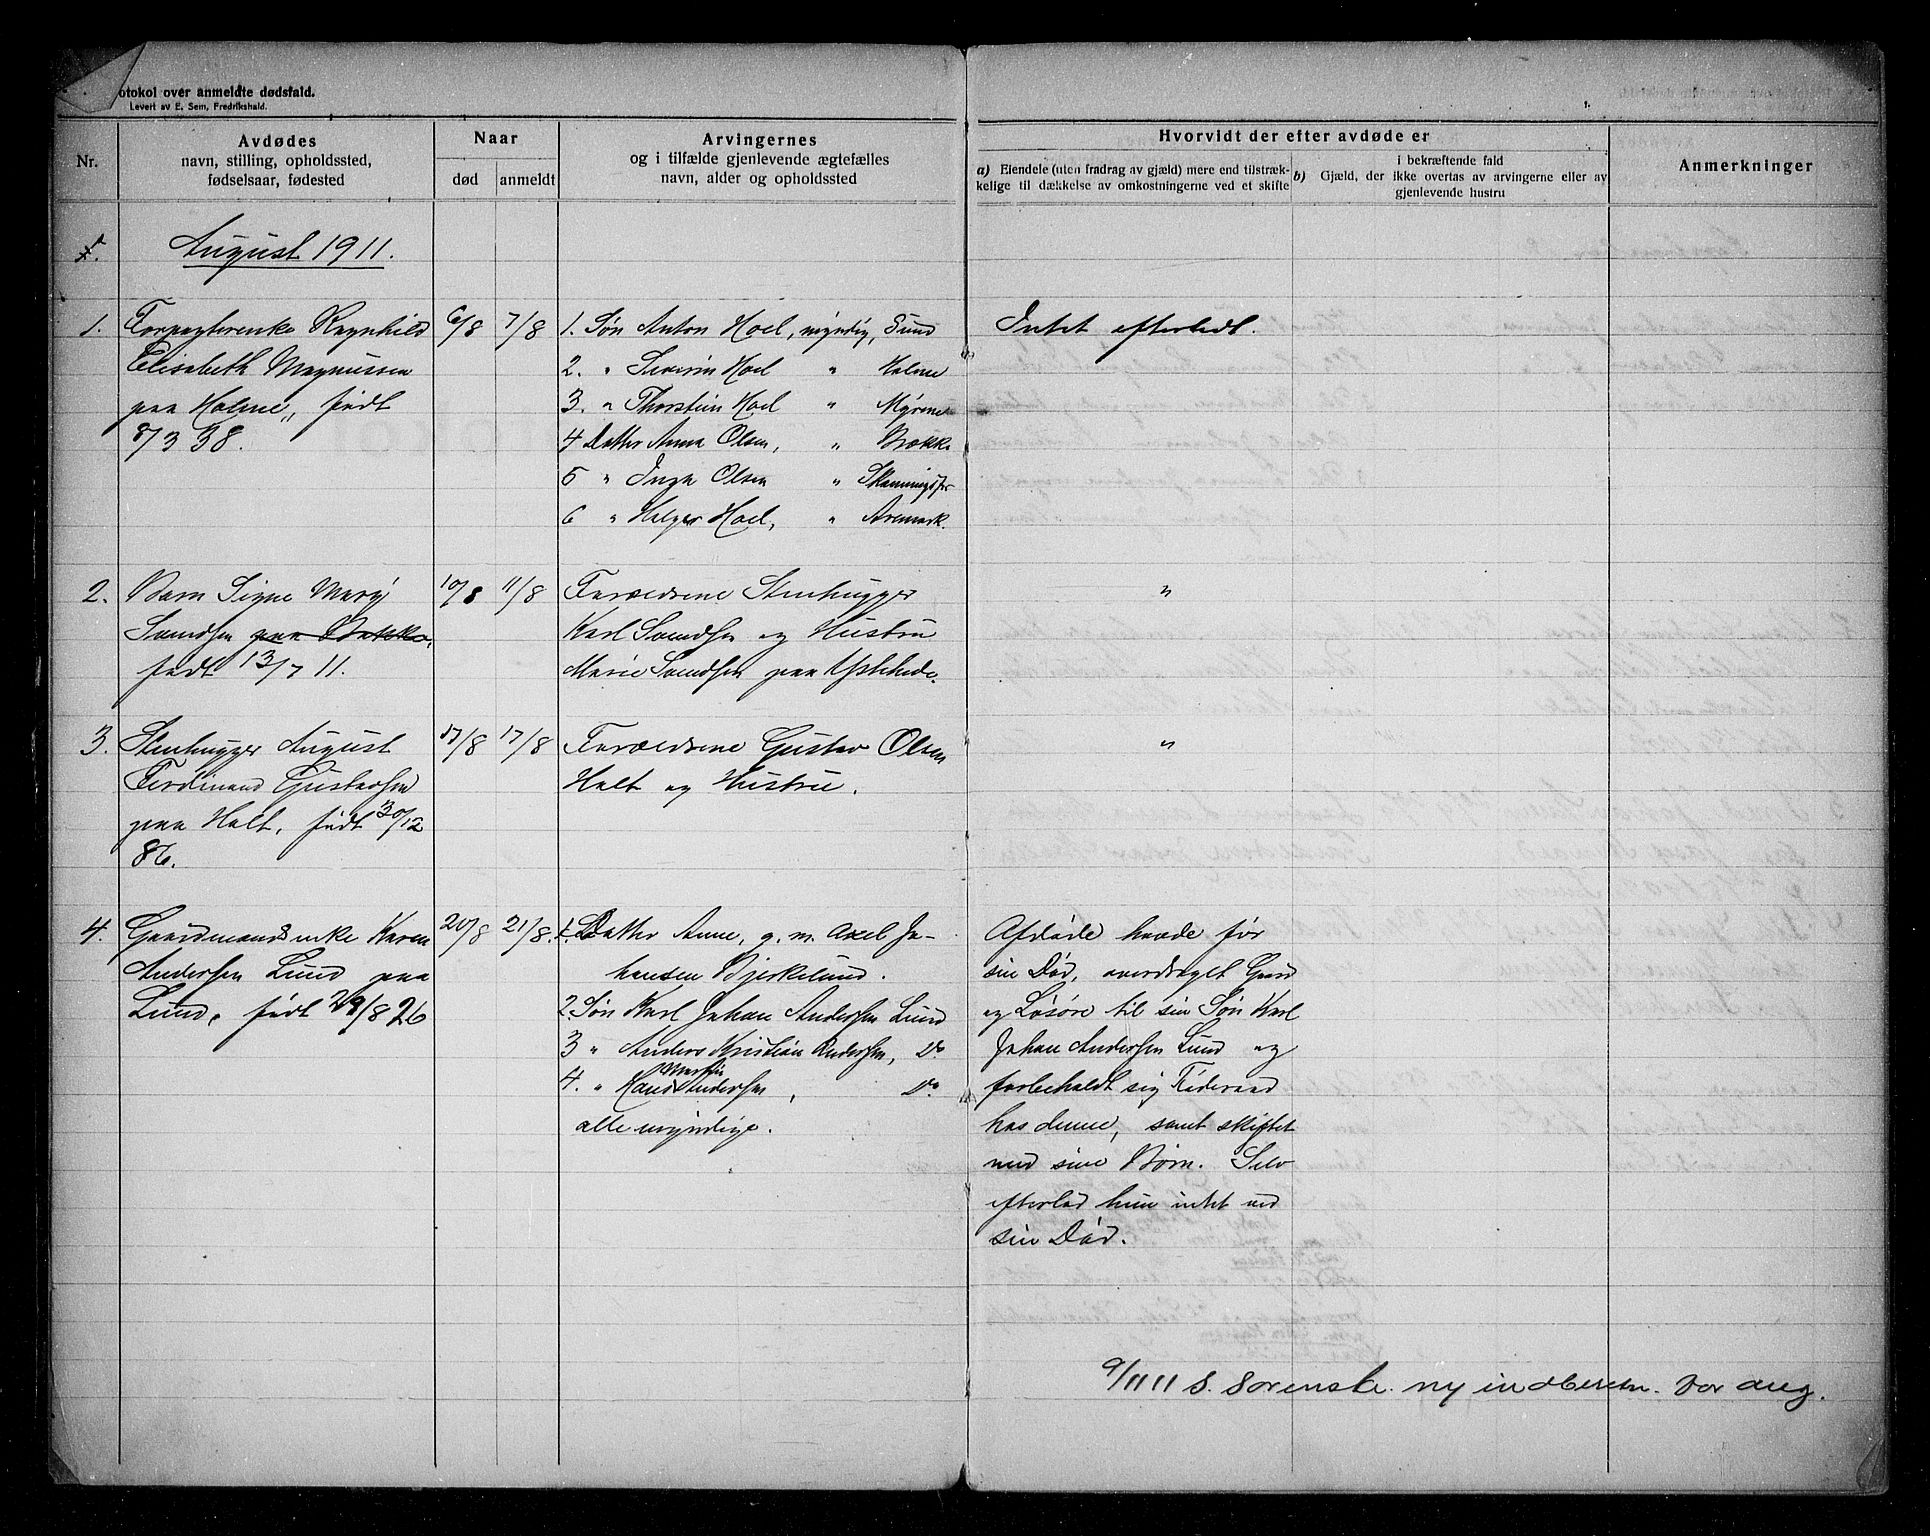 otokol over anmeldte dødsfald.
Levert av E. Sem, Fredrikshald.
Nr.
Avdødes
navn, stilling, opholdssted,
fødselsaar, fødested
Naar
død
anmeldt
Arvingernes
og i tilfælde gjenlevende ægtefælles
navn, alder og opholdssted
Hvorvidt der efter avdøde er
a) Eiendele (uten fradrag av gjæld) mere end tilstræk-
kelige til dækkelse av omkostningerne ved et skifte
i bekræftende fald
b) Gjæld, der ikke overtas av arvingerne eller av
gjenlevende hustru
Anmerkninger
August 1911.
1. Forpagterenke Ragnhild
Elisabeth Magnussen
paa Holme, født
8/3 38.
6/8 7/8
1. Søn Anton Hoel, myndig, Sund
2. " Severin Hoel " Holme
3. " Thorstein Hoel " Myrene
4 Datter Anna Olsen, " Brække
5 " Inga Olsen "
6 " Helga Hoel, " Aremark.
Intet efterladt.
2. Barn Signe Mary
Svendsen paa Bakke,
født 13/7 11.
10/8 11/8
Forældrene Stenhugger
Karl Svendsen og Hustru
Marie Svendsen paa
"
3. Stenhugger August
Ferdinand Gustavsen
paa Holt, født 30/12
86.
17/8 17/8
Forældrene Gustav Olsen
Holt og Hustru.
"
4. Gaardmandsenke Karen
Andersen Lund paa
Lund, født 29/8 26
20/8 21/8.
1. Datter Anne, g. m. Axel Jo-
hansen Bjerkelund.
2. Søn Karl Johan Andersen Lund
3 " Anders Kristian Andersen, Do
4. " Hans Martin Andersen, Do.
alle myndige.
Afdøde havde før
sin Død, overdraget Gaard
og Løsøre til sin Søn Karl
Johan Andersen Lund og
forbeholdt sig Føderaad
hos denne, samt skiftet
med sine Børn. Selv
efterlod hun intet ved
sin Død.
9/11 11 S. Sorenskr. ny indberetn. for aug.